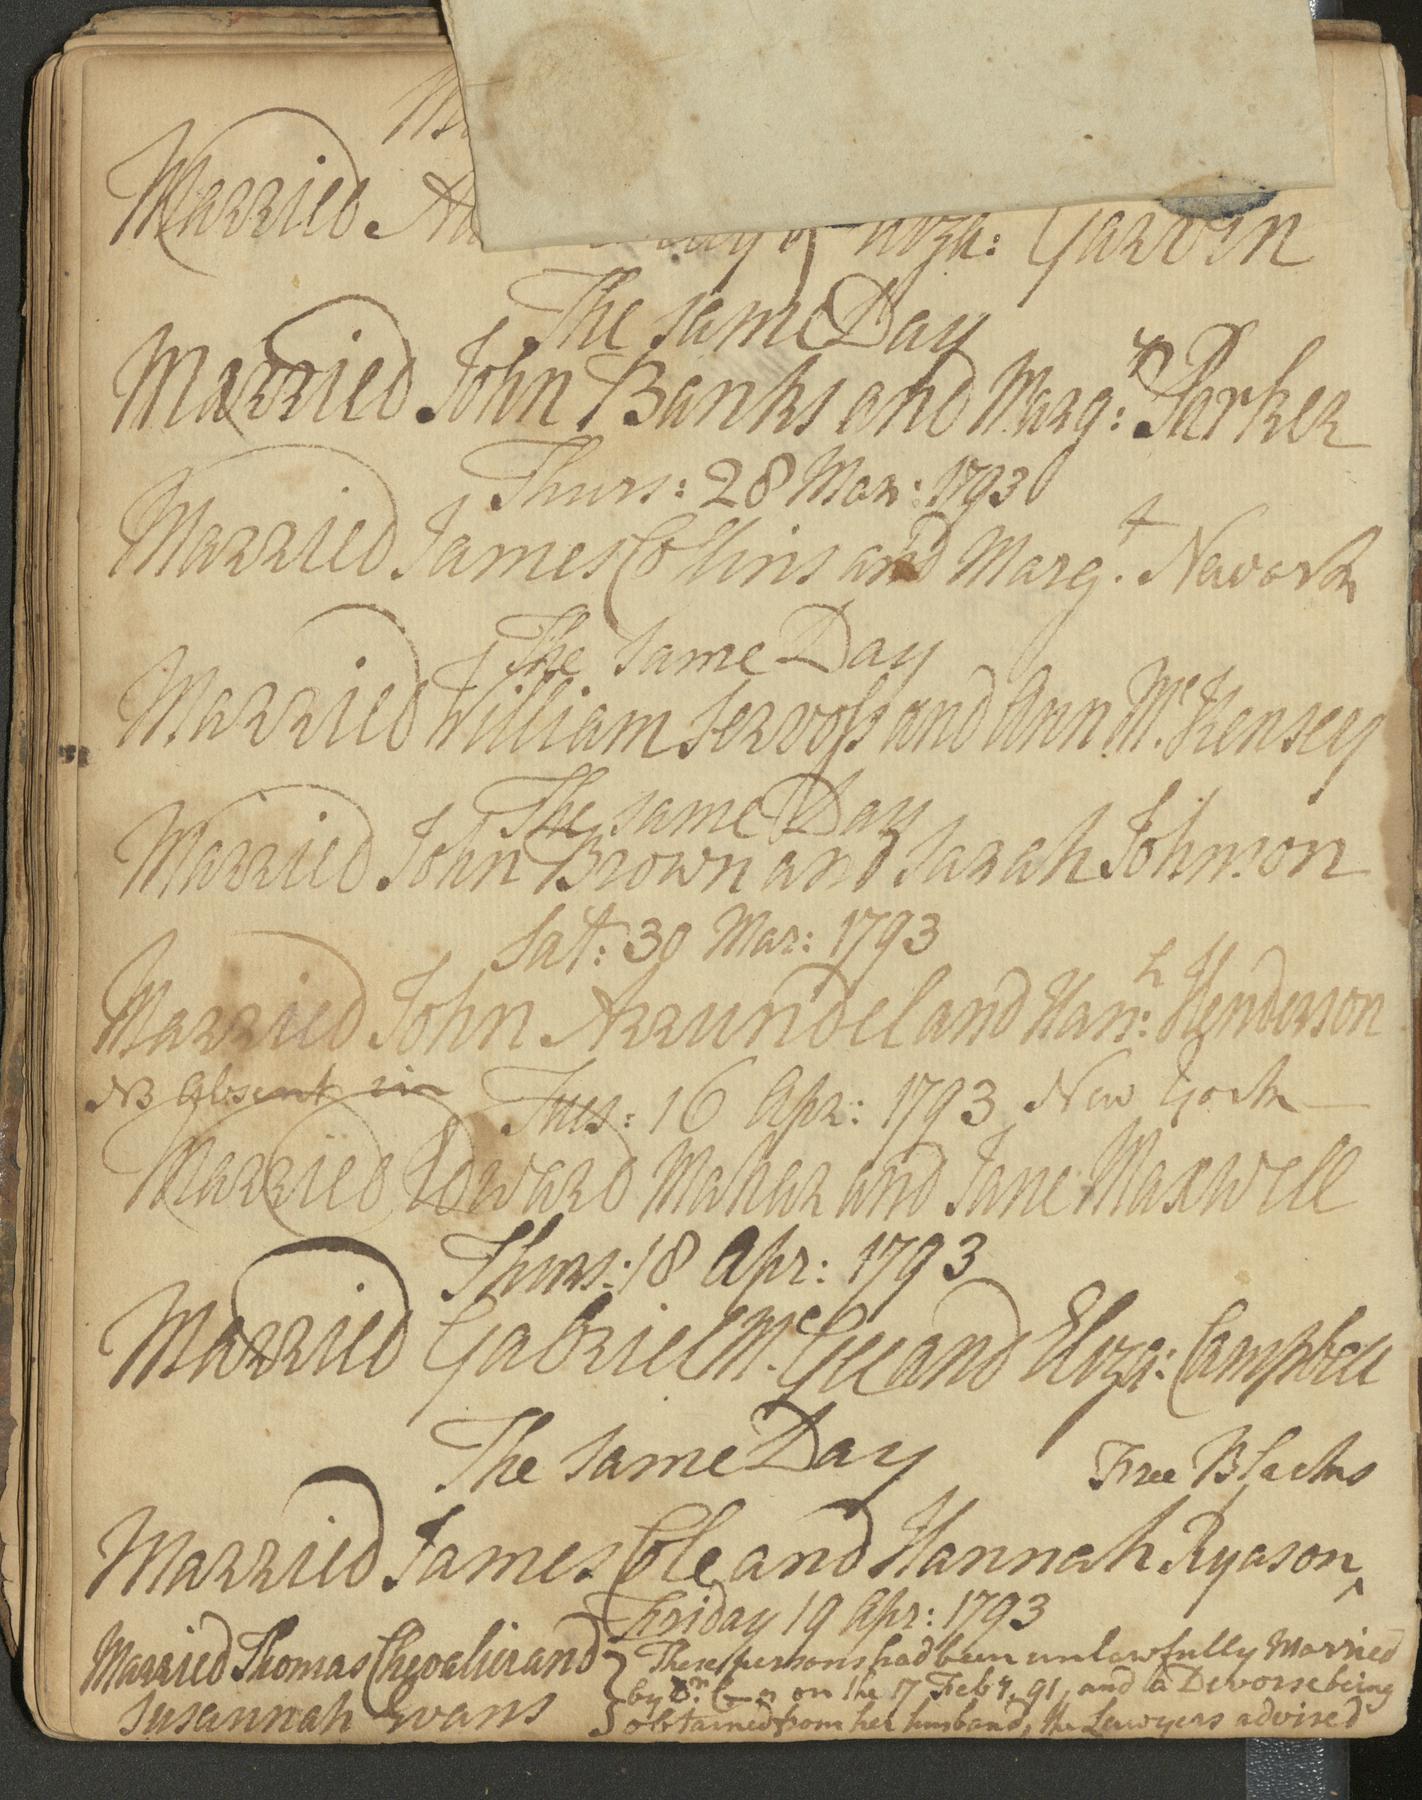 Married Eliza: Garvin
The same Day
Married John Banks and Marg:t Parker
Thurs: 28 Mar: 1793
Married James Collins and Marg.t Newark
The same Day
Married William Servoss and Ann Mc.Kensey
The same Day
Married John Brown and Sarah Johnson
Sat: 30 Mar: 1793
Married John Arrundel and Han:h Henderson
NB Absent in Tues: 16 Apr: 1793 New York
Married Edward Mahar and Jane Maxwell
Thurs: 18 Apr: 1793
Married Gabriel Mc.Gee and Eliza: Campbell
The same Day Free Blacks
Married James Cole and Hannah Ryason ^
Friday 19 Apr: 1793
Married Thomas Chevalier and
Susannah Evans
These persons had been unlawfully Married
by on the 17 Feby, 91, and a Devorse being
obtained from her husband, the Lawyers advised